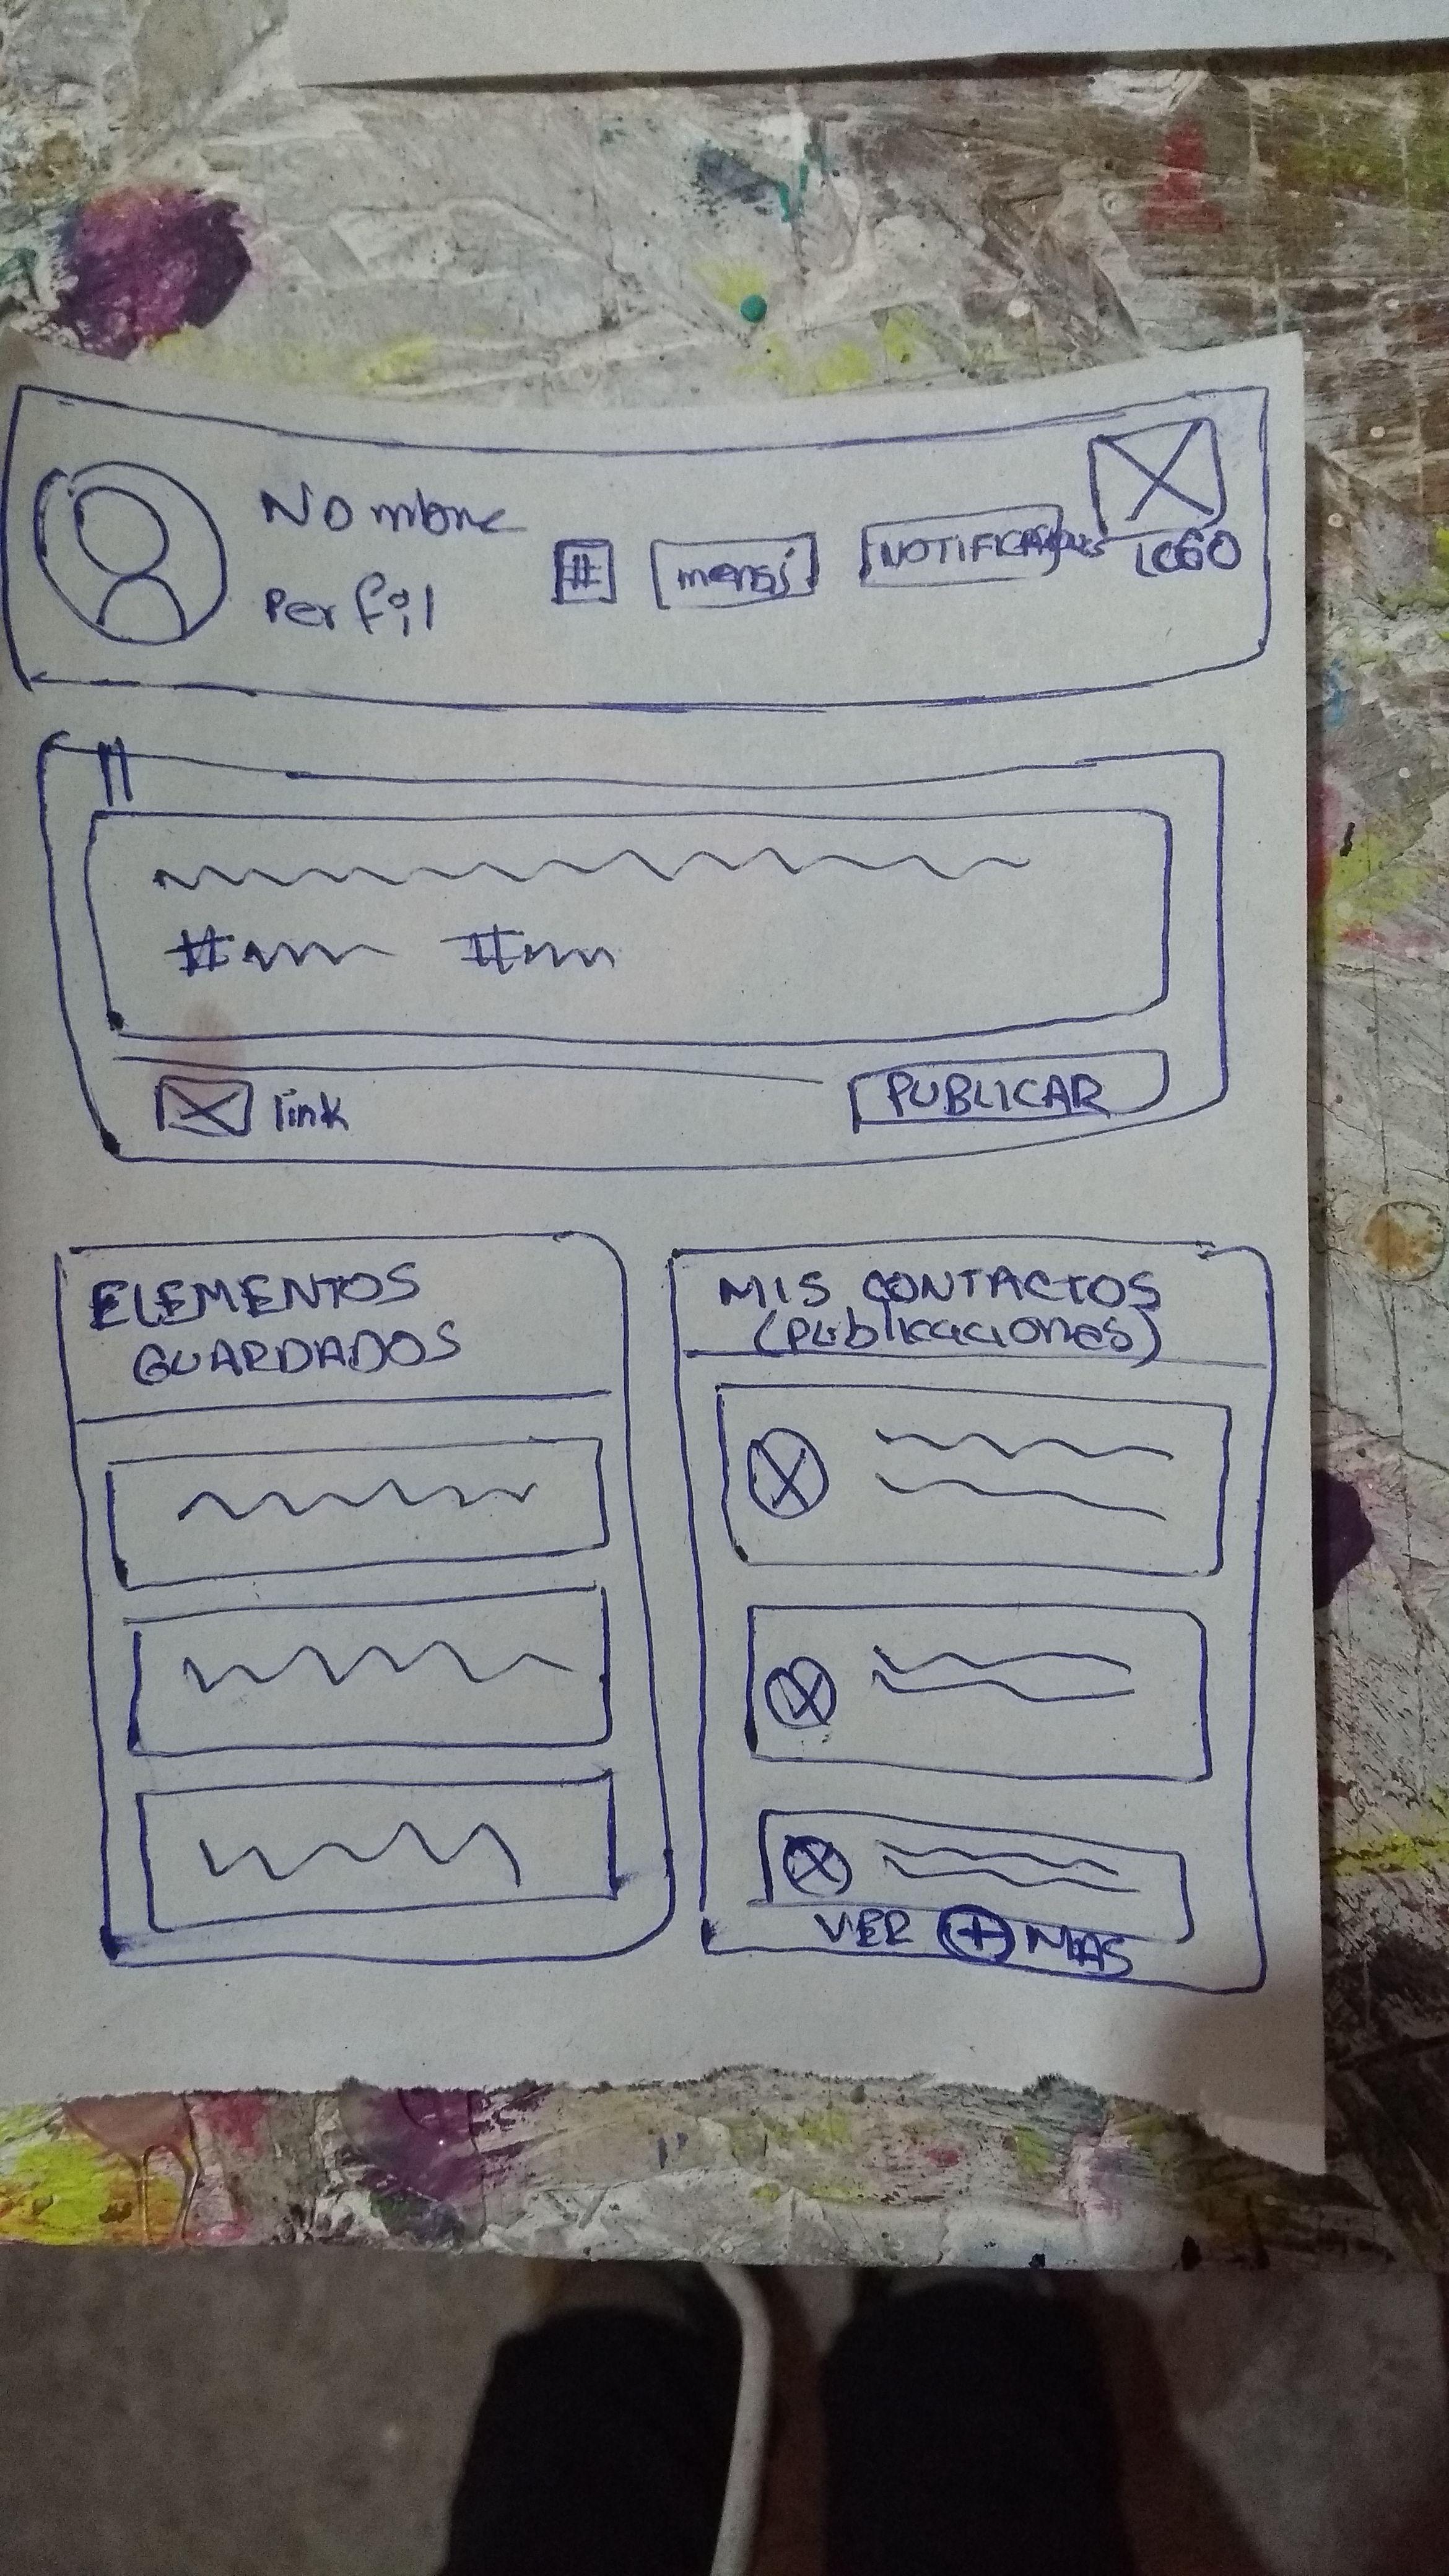 Nombre
Perfil
#
mensj
NOTIFICACIONES
LOGO
# #
link
PUBLICAR
ELEMENTOS
GUARDADOS
MIS CONTACTOS
(Publicaciones)
VER + MAS